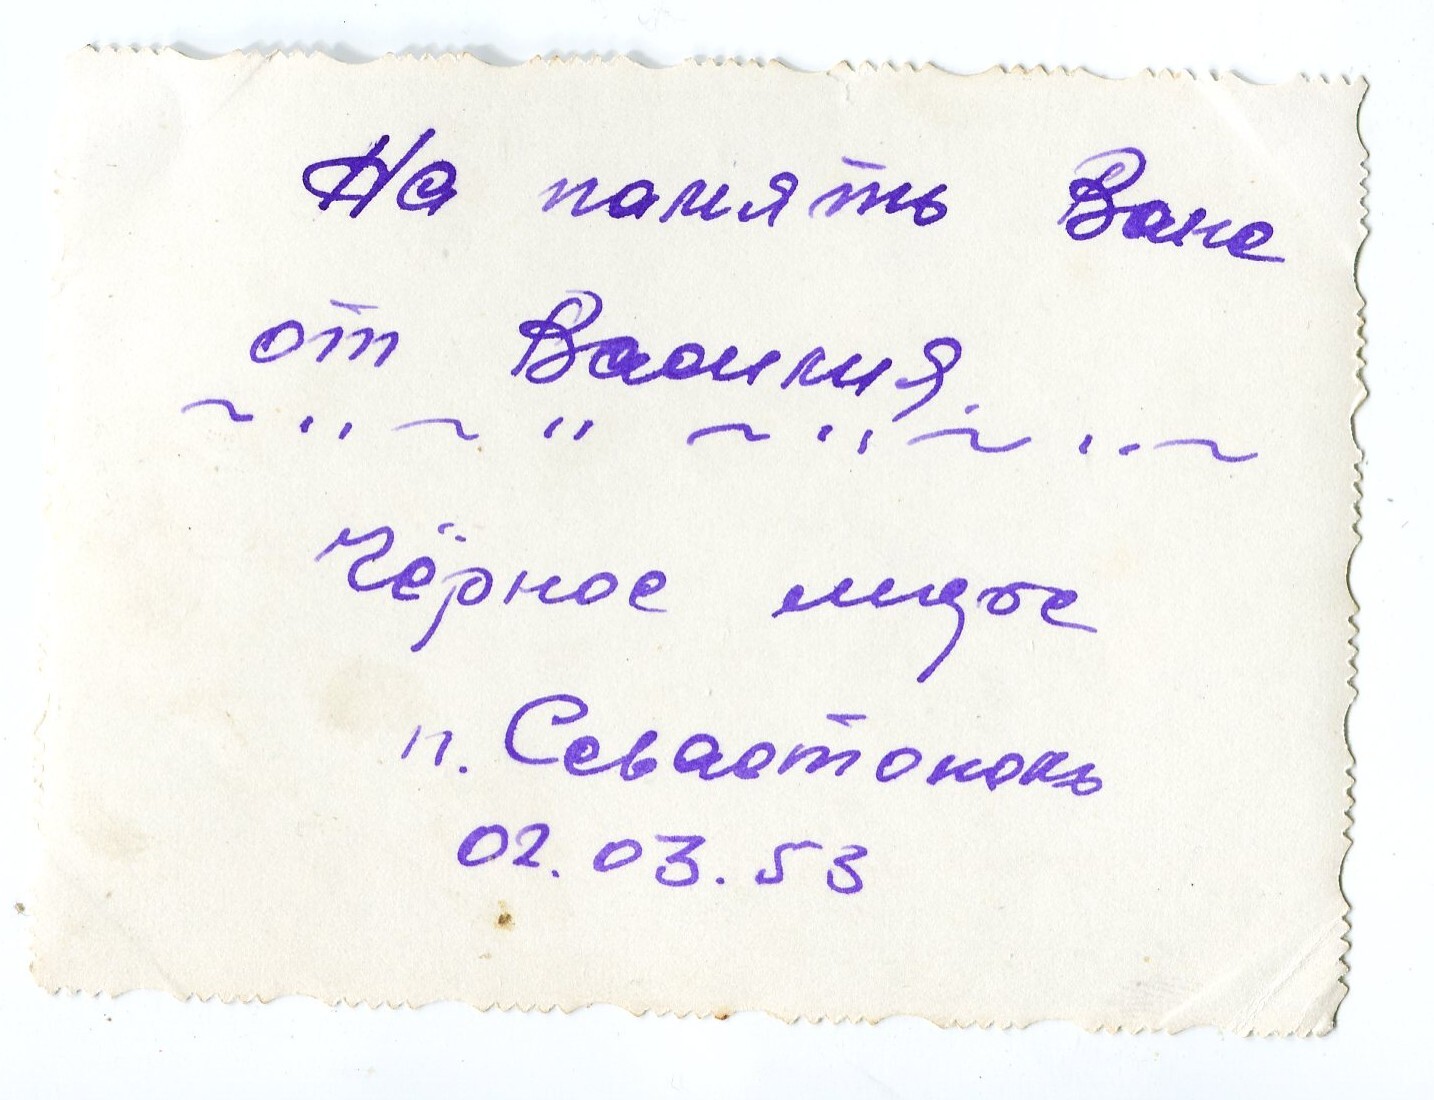 На память Ване
от Василия.
~ " ~ " ~ " ~ " ~
Чёрное море
п. Севастополь
02.03.53